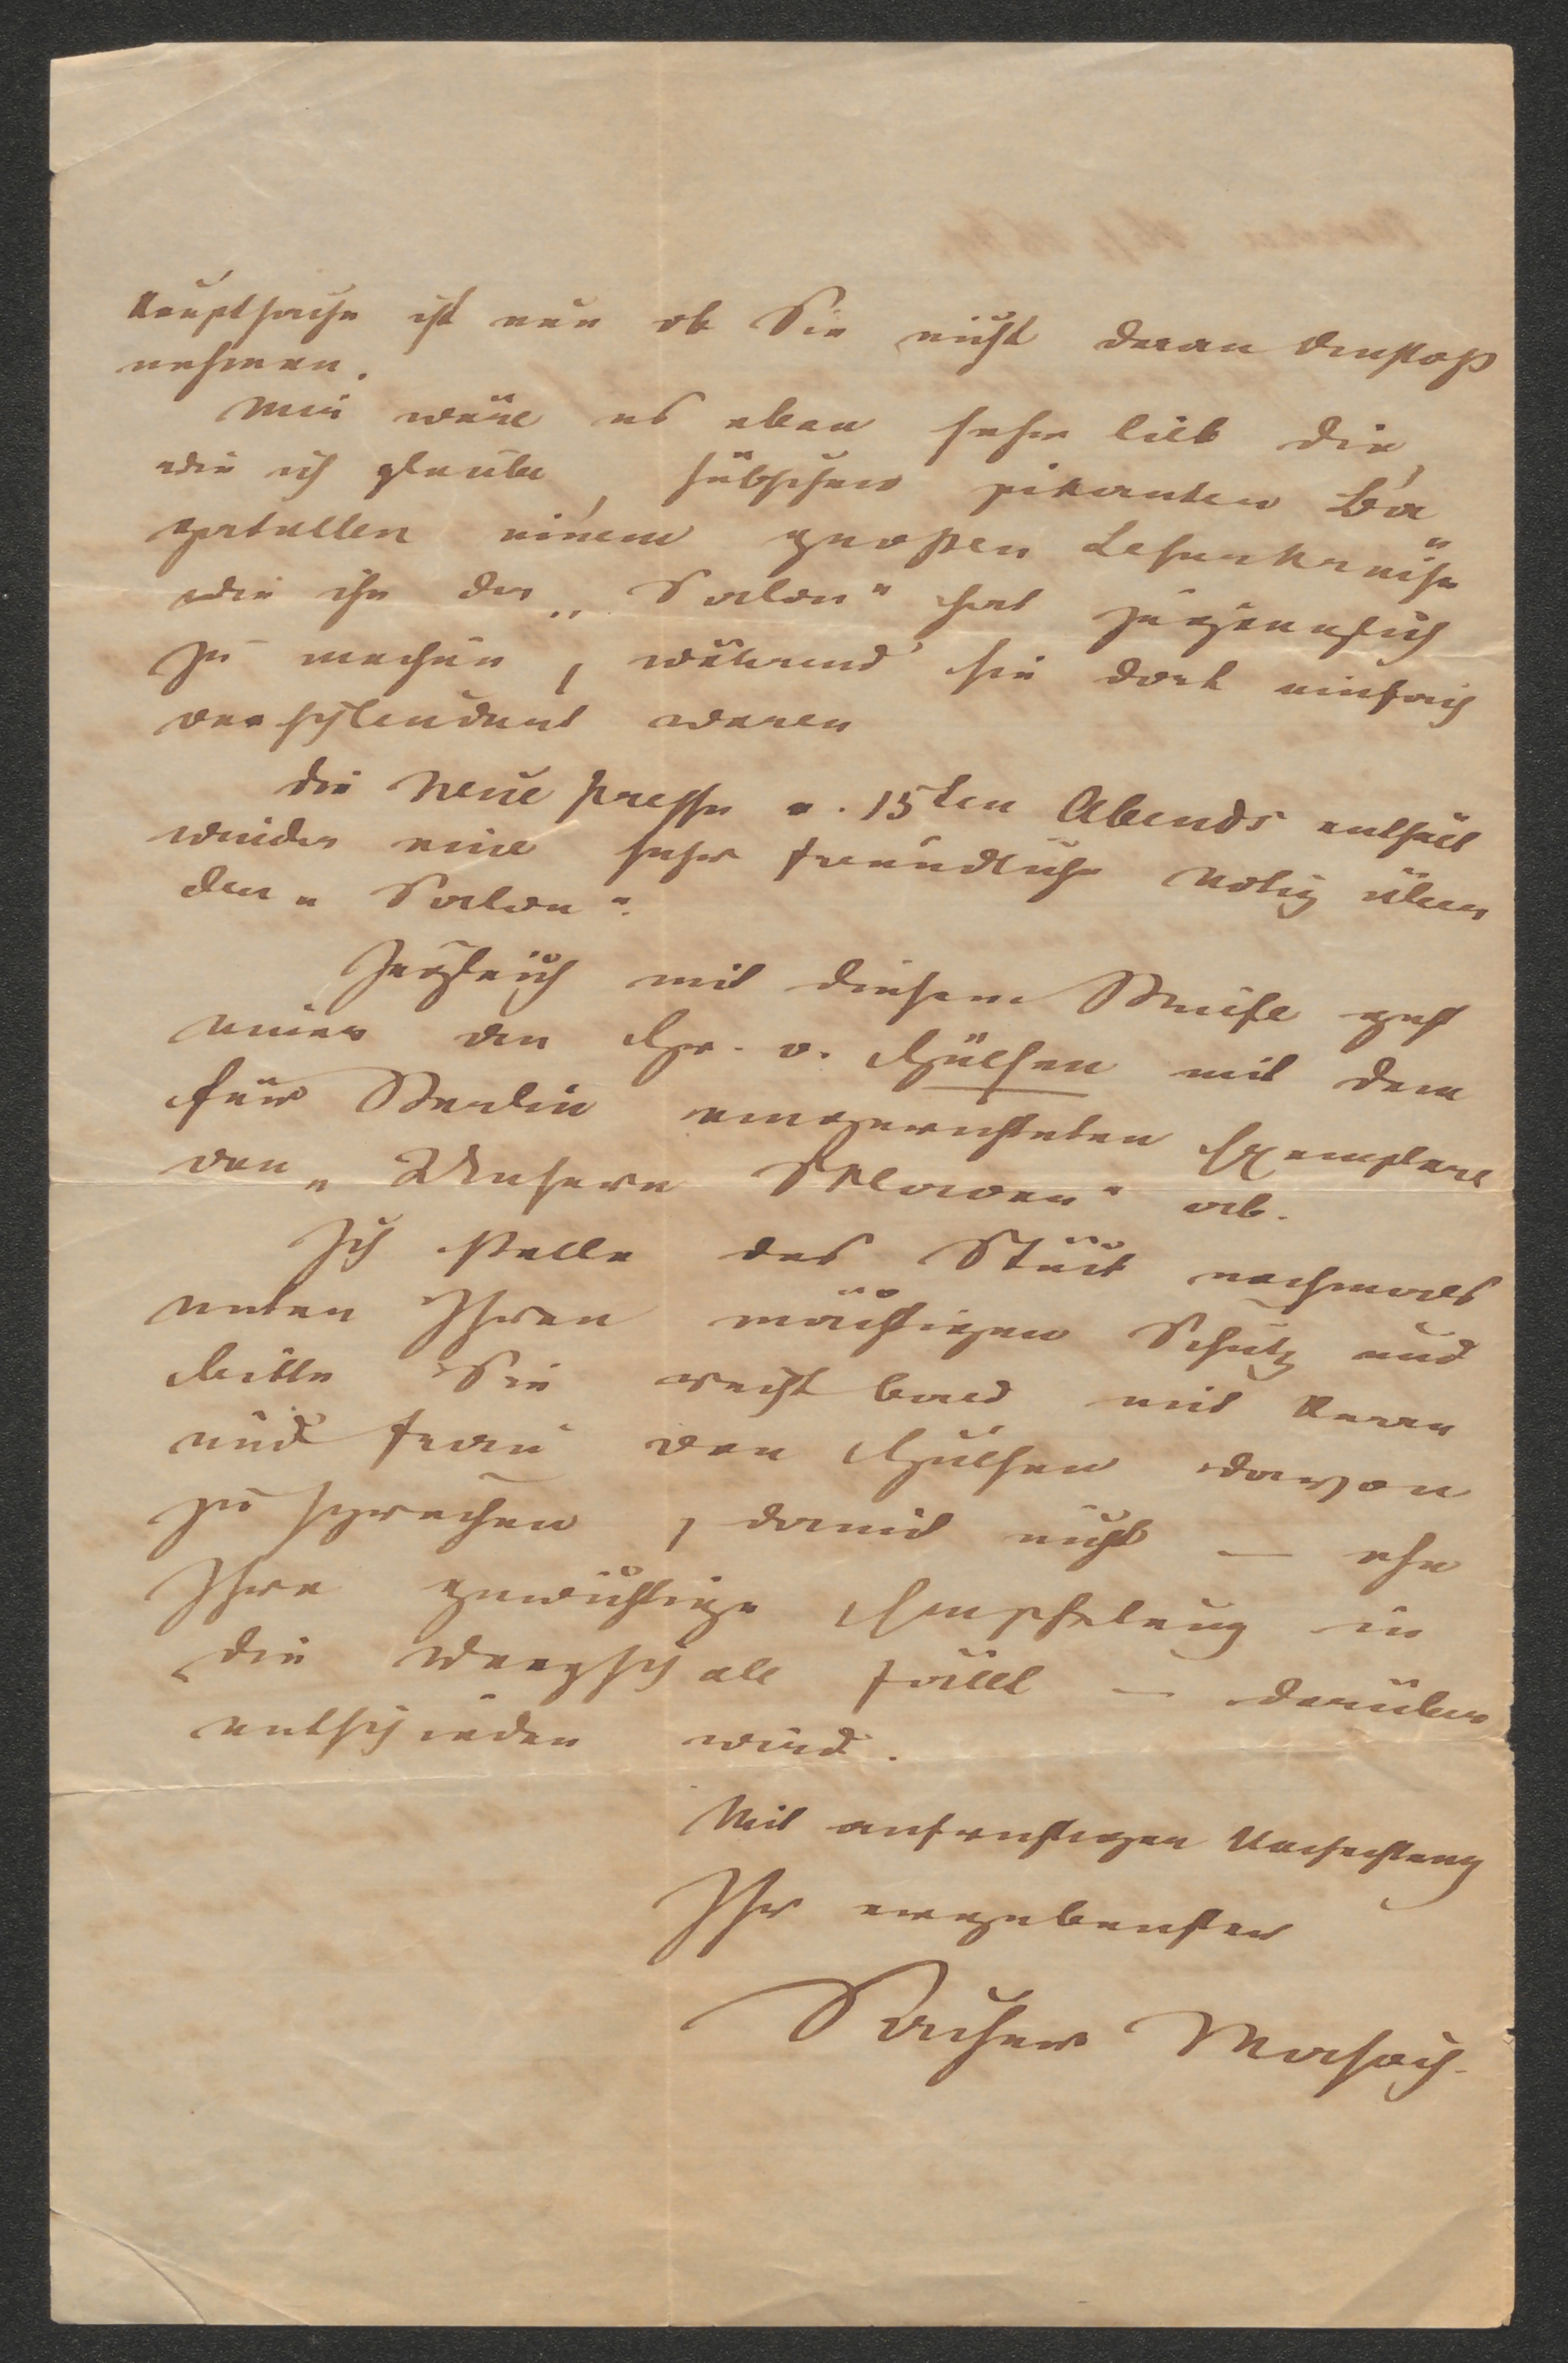 Hauptsache ist nun ob Sie nicht daran Anstoß
nehmen.
Mir wäre es eben sehr lieb die,
wie ich glaube, hübschen pikanten Ba
gatellen einem großen Leserkreise
wie ihn der „Salon" hat zugänglich
zu machen, während sie dort einfach
verschleudert waren
Die Neue Presse v. 15ten Abends enthält
wieder eine sehr freundliche Notiz über
den „Salon".
Zugleich mit diesem Briefe geht
einer an Hr. v. Hülsen mit dem
für Berlin eingerichteten Exemplare
von „Unsere Sklaven" ab.
Ich stelle das Stück nochmals
unter Ihren mächtigen Schutz und
bitte Sie recht bald mit Herrn
und Frau von Hülsen davon
zu sprechen, damit nicht — ehe
Ihre gewichtige Empfelung in
die Wagschale fällt — darüber
entschieden wird.
Mit aufrichtigen Hochachtung
Ihr ergebenster
Sacher Masoch